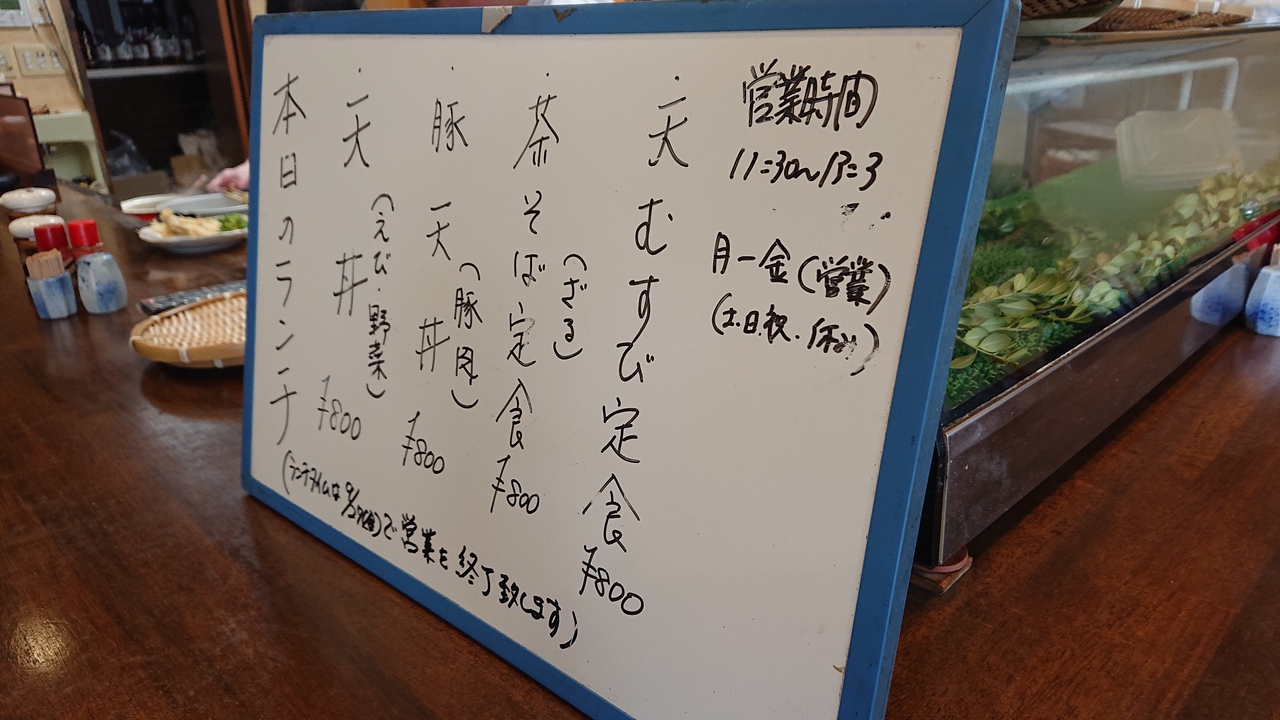 営業時間
11:30~13:3
月-金(営業)
(土.日.祝.休み)
・天むすび定食 ¥800
・茶そば定食 ¥800
(ざる)
・豚天丼 ¥800
(豚肉)
・天丼 ¥800
(えび・野菜)
本日のランチ
(ランチタイムは9/27(金)で営業を終了致します)